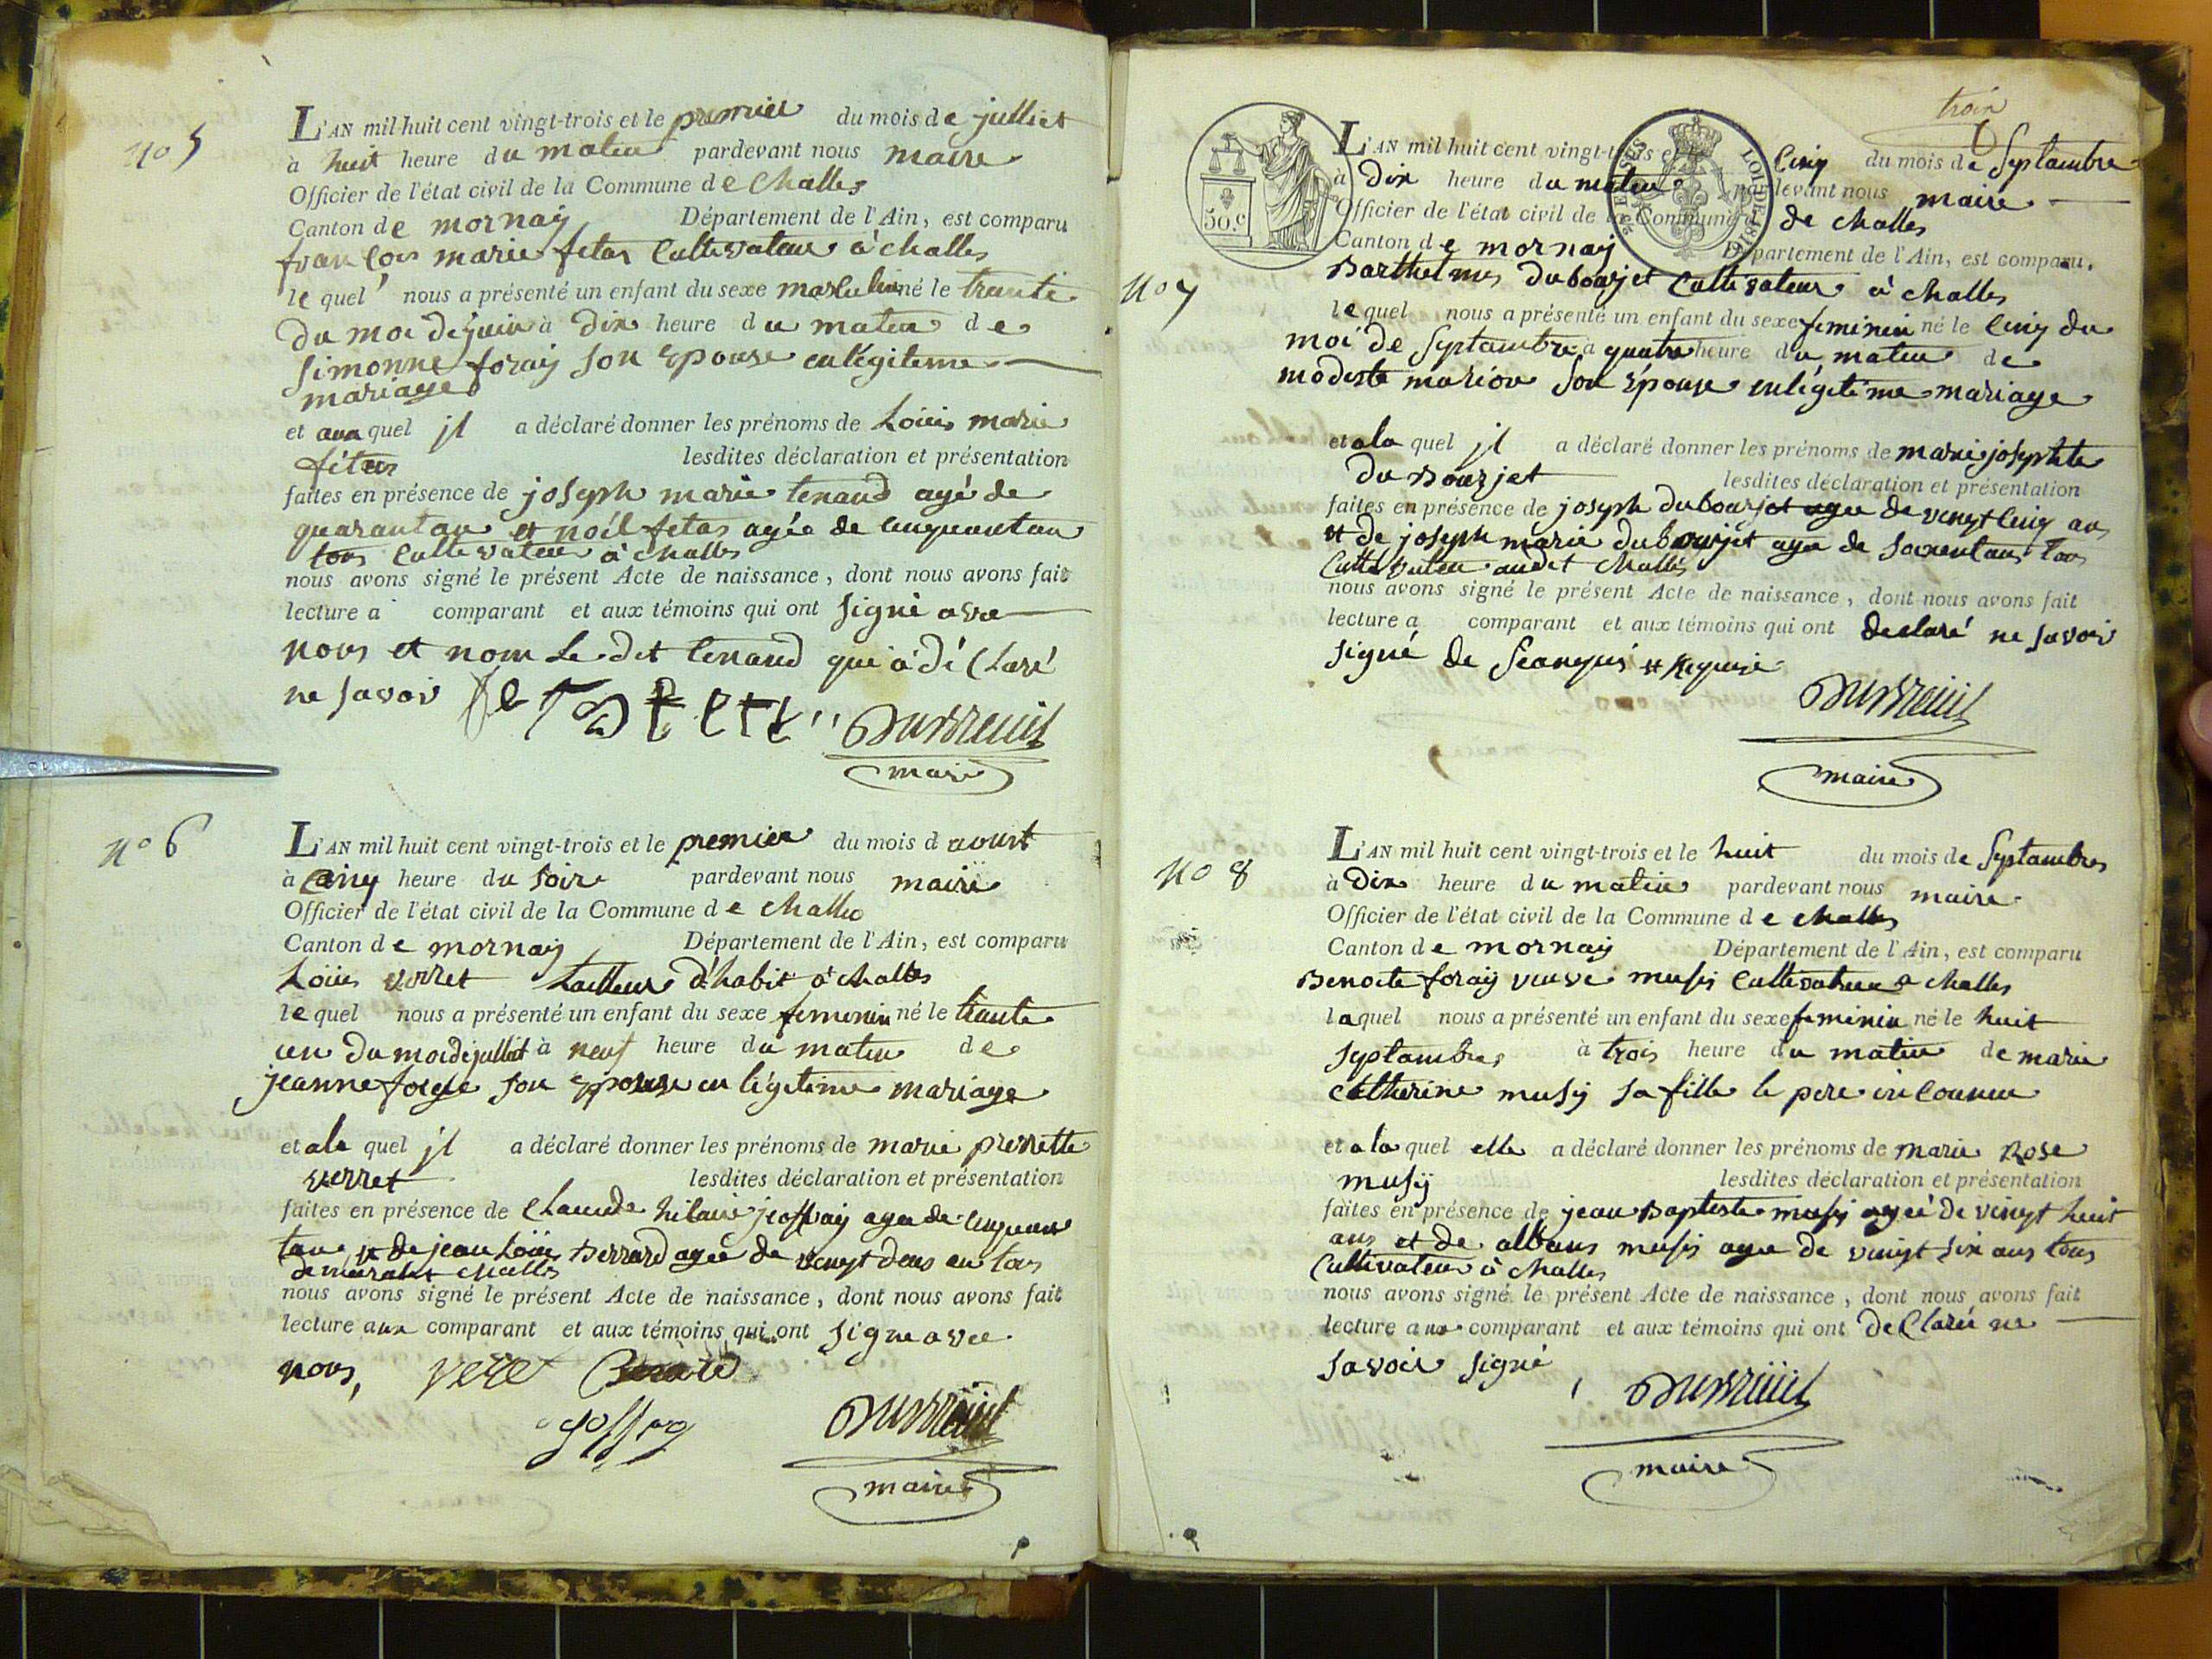 No 5
L'AN mil huit cent vingt-trois et le premier du mois de julliet
à huit heure du matin pardevant nous maire
Officier de l'état civil de la Commune de Challes
Canton de mornay Département de l'Ain, est comparu
francois marie fetas Cultivateur à challes
le quel nous a présenté un enfant du sexe masculin né le trante
du moi de juin à dix heure du matin de
Simonne foray Son Epouse en légiteme
mariage
et aux quel jl a déclaré donner les prénoms de Loüis marie
fétas lesdites déclaration et présentation
faites en présence de joseph marie tenaud agé de
quarantan et noél fetas agée de cinquantan
tous Cultivateur à challes
nous avons signé le présent Acte de naissance, dont nous avons fait
lecture a comparant et aux témoins qui ont Signé avec
nous et nom Le dit tenaud qui à dé Claré
ne Savoir
Dubreüil
maire
No 6
L'AN mil huit cent vingt-trois et le premier du mois d aoust
à Cinq heure du Soir pardevant nous maire
Officier de l'état civil de la Commune de challes
Canton de mornay Département de l'Ain, est comparu
Loüis verret tailleur d'habit à challes
le quel nous a présenté un enfant du sexe feminin né le trante
un du moi de julliet à neuf heure du matin de
jeanne forge Son Epouse en légitime mariage
et ala quel jl a déclaré donner les prénoms de marie pierrette
verret lesdites déclaration et présentation
faites en présence de Claude hilaire joffray agée de cinquan
tan et de jean Loüis Berrard agée de vingt deus an tous
demeurant challes
nous avons signé le présent Acte de naissance, dont nous avons fait
lecture aux comparant et aux témoins qui ont Signe avec
nous, veret Berard
Dubreüil
maire
trois
50 c.
LOI DE 1816
L'AN mil huit cent vingt-trois et le Cinq du mois de Septambre
à Dix heure du matin pardevant nous maire
Officier de l'état civil de la Commune de challes
Canton de mornay Département de l'Ain, est comparu.
No 7
Barthelmy Dubourjet Cultivateur à challes
le quel nous a présenté un enfant du sexe feminin né le Cinq du
moi de Septambre à quatre heure du matin de
modeste marion Son Épouse en légitime mariage
et ala quel jl a déclaré donner les prénoms de marie josephte
du Bourjet lesdites déclaration et présentation
faites en présence de joseph dubourjet agée de vingt Cinq an
et de joseph marie dubourjet agée de Soixentans tous
Cultivateur audit challes
nous avons signé le présent Acte de naissance, dont nous avons fait
lecture a comparant et aux témoins qui ont declaré ne Savoir
Signé de Requise
Dubreüil
maire
No 8
L'AN mil huit cent vingt-trois et le huit du mois de Septambre
à Dix heure du matin pardevant nous maire
Officier de l'état civil de la Commune de challes
Canton de mornay Département de l'Ain, est comparu
Benoite foray veuve musy Cultivateur a challes
laquel nous a présenté un enfant du sexe feminin né le huit
Septambre à trois heure du matin de marie
Catherine musy Sa fille le pere inconnu
et a la quel elle a déclaré donner les prénoms de marie Rose
musy lesdites déclaration et présentation
faites en présence de jean Baptiste musy agée de vingt huit
ans et de albans musy agée de vingt Six ans tous
Cultivateur à challes
nous avons signé le présent Acte de naissance, dont nous avons fait
lecture aux comparant et aux témoins qui ont de Claré ne
Savoir Signé
Dubreüil
maire